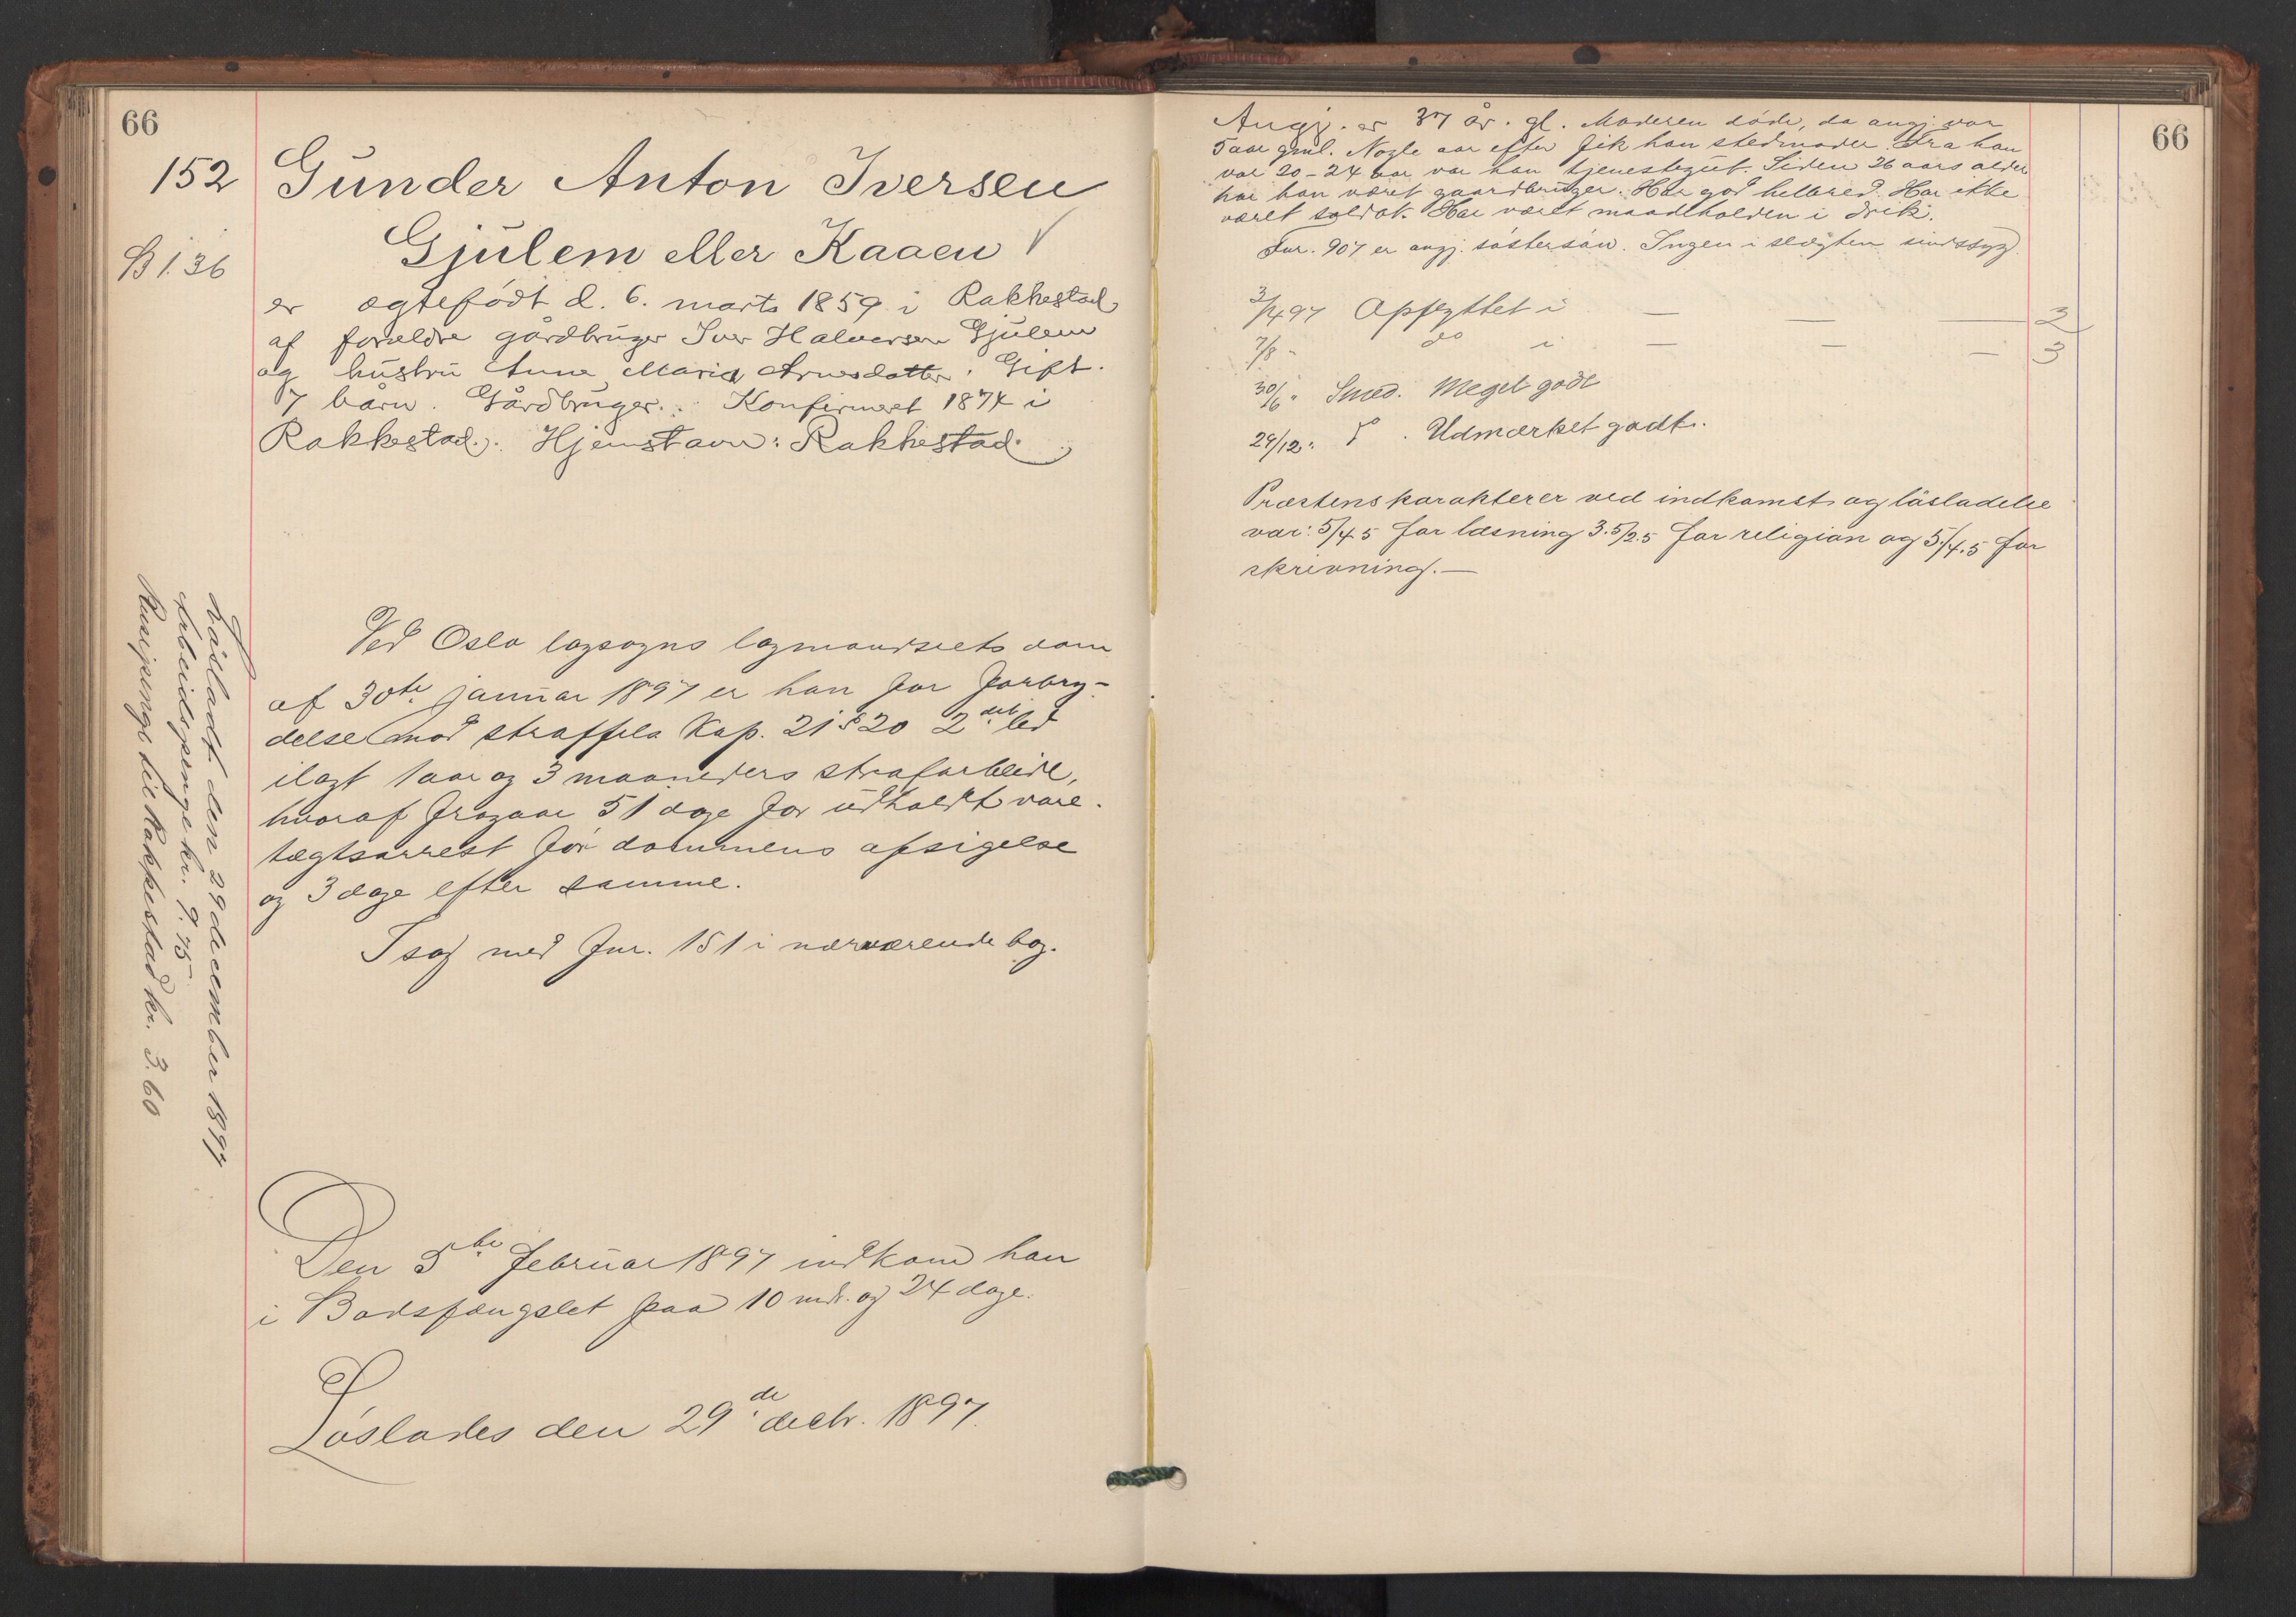 66
152
Gunder Anton Iversen
Gjulem eller Kaaen
B 1. 36
er ægtefødt d. 6. marts 1859 i Rakkestad
af forældre gårdbruger Iver Halvorsen Gjulem
og hustru Anne Maria Arnesdatter. Gift.
7 børn. Gårdbruger. Konfirmeret 1874 i
Rakkestad. Hjemstavn: Rakkestad.
Ved Oslo lagsogns lagmandsrets dom
af 30te januar 1897 er han for forbry-
delse mod straffela Kap. 21 § 20 2det led
ilagt 1 aar og 3 maaneders strafarbeide,
hvoraf fragaar 51 dage for udholdt vare-
tægtsarrest før dommens afsigelse
og 3 dage efter samme.
I sag med fnr. 151 i nærværende bog.
Den 5te februar 1897 indkom han
i Bodsfængslet paa 10 mdr. og 24 dage.
Løslades den 29de decbr. 1897.
Løsladt den 29 december 1897
Arbeidspenge kr. 9.75
Reisepenge til Rakkestad kr. 3.60
66
Angj. er 37 år. gl. Moderen døde, da angj. var
5 aar gml. Nogle aar efter fik han stedmoder. Fra han
var 20-24 aar var han tjenestegut. Siden 26 aars alder
har han været gaardbruger. Har god helbred. Har ikke
været soldat. Har været maadeholden i drik.
Fnr. 907 er angj. søstersøn. Ingen i slægten sindssyg.
3/4 97 Opflyttet i — — — 2
7/8 " do i — — — 3
30/6 " Smed. Meget godt
29/12 " . Udmærket godt.
Præstens karakterer ved indkomst og løsladelse
var: 5/4.5 for læsning 3.5/2.5 for religion og 5/4.5 for
skrivning. —